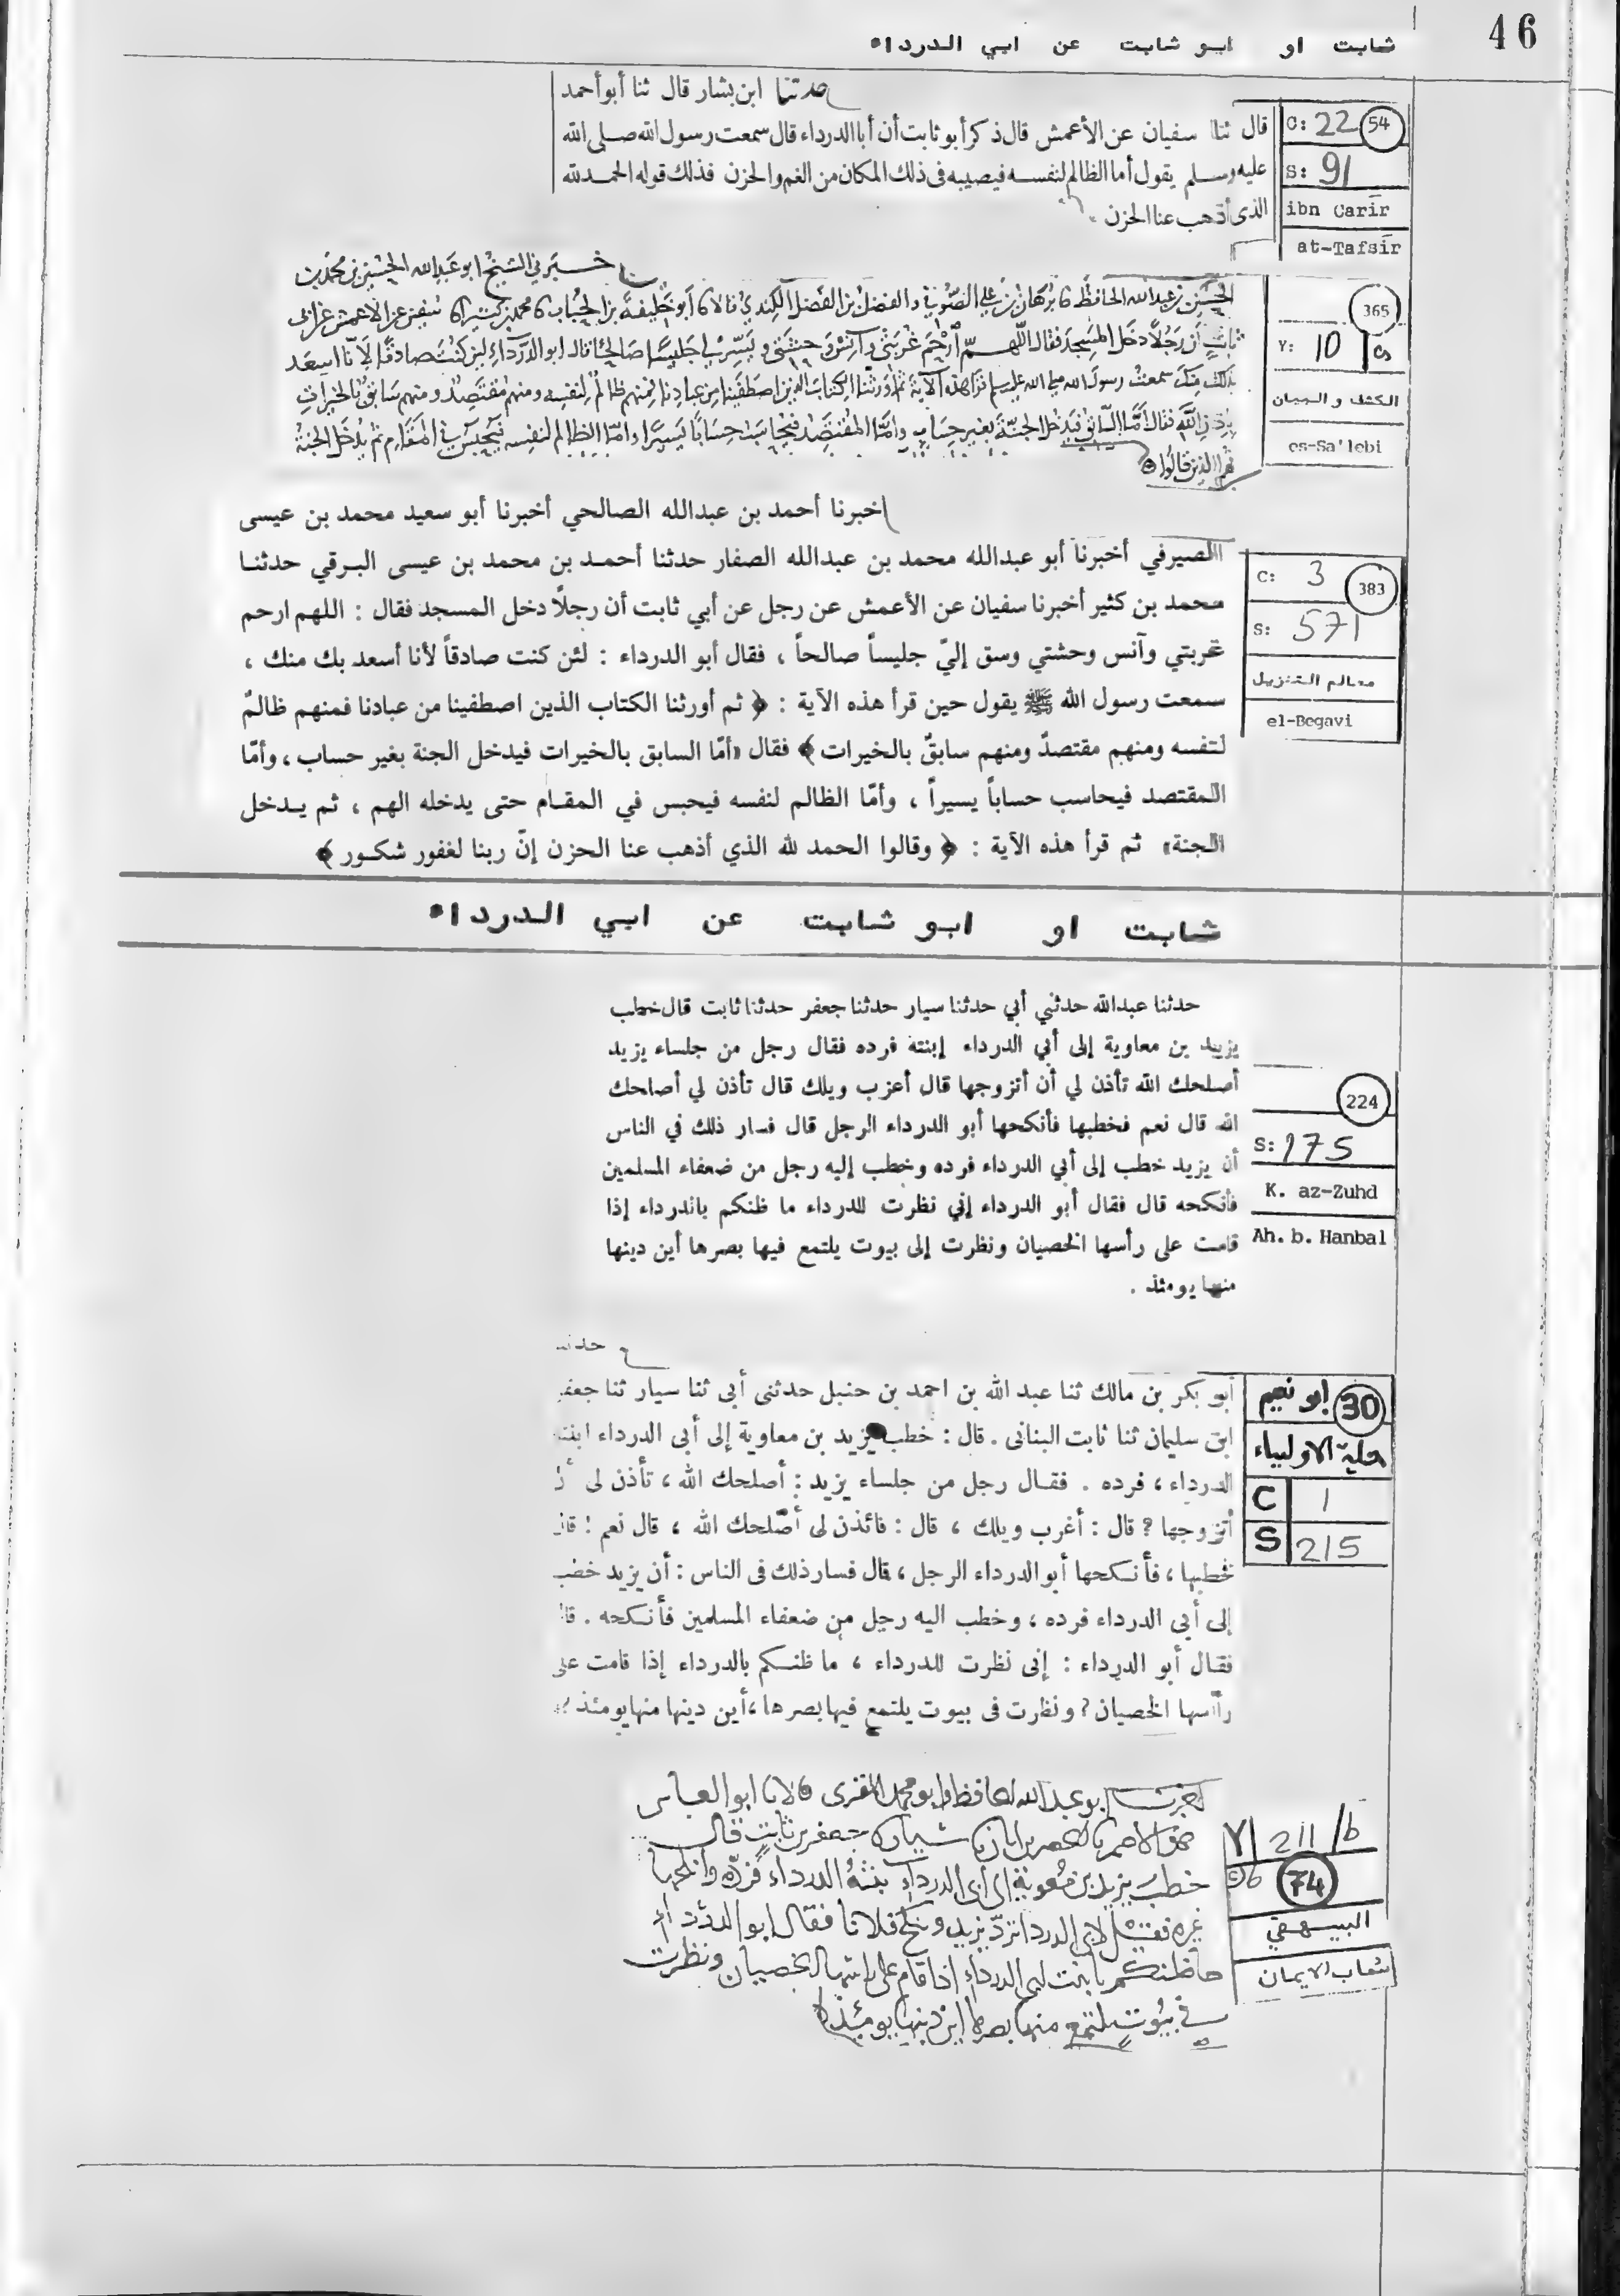 46
ثابت او ابو ثابت عن ابي الدرداء
حدثنا ابن بشار قال ثنا أبو أحمد
قال ثنا سفيان عن الأعمش قال ذكر أبو ثابت أن أبا الدرداء قال سمعت رسول الله صلى الله
عليه وسلم يقول أما الظالم لنفسه فيصيبه فى ذلك المكان من الغم والحزن فذلك قوله الحمد لله
الذى أذهب عنا الحزن
C: 22 54
S: 91
ibn Carīr
at-Tafsīr
خبرني الشيخ ابو عبدالله الحسين بن محمد بن
الحسين بن عبدالله الحافظ برهان بن علي الصوفي والفضل بن الفضل الكندي قالا أبو خليفة بن الحباب محمد بن كثير سفين عن الاعمش عن ابي
ثابت أن رجلا دخل المسجد فقال اللهم ارحم غربتي وآنس وحشتي ويسر لي جليسا صالحا فقال ابو الدرداء لئن كنت صادقا لانا اسعد
بذلك منك سمعت رسول الله صلى الله عليه وسلم قرا هذه الآية ثم أورثنا الكتاب الذين اصطفينا من عبادنا فمنهم ظالم لنفسه ومنهم مقتصد ومنهم سابق بالخيرات
بإذن الله فقال أما السابق فيدخل الجنة بغير حساب وأما المقتصد فيحاسب حسابا يسيرا واما الظالم لنفسه فيحبس في المقام ثم يدخل الجنة
فهم الذين قالوا
365
Y: 10
الكشف و البيان
es-Sa'lebi
اخبرنا أحمد بن عبدالله الصالحي أخبرنا أبو سعيد محمد بن عيسى
الصيرفي أخبرنا أبو عبدالله محمد بن عبدالله الصفار حدثنا أحمد بن محمد بن عيسى البرقي حدثنا
محمد بن كثير أخبرنا سفيان عن الأعمش عن رجل عن أبي ثابت أن رجلاً دخل المسجد فقال : اللهم ارحم
غربتي وآنس وحشتي وسق إليّ جليساً صالحاً ، فقال أبو الدرداء : لئن كنت صادقاً لأنا أسعد بك منك ،
سمعت رسول الله ﷺ يقول حين قرأ هذه الآية : ﴿ ثم أورثنا الكتاب الذين اصطفينا من عبادنا فمنهم ظالمٌ
لنفسه ومنهم مقتصدٌ ومنهم سابقٌ بالخيرات ﴾ فقال «أمّا السابق بالخيرات فيدخل الجنة بغير حساب ، وأمّا
المقتصد فيحاسب حساباً يسيراً ، وأمّا الظالم لنفسه فيحبس في المقام حتى يدخله الهم ، ثم يدخل
الجنة» ثم قرأ هذه الآية : ﴿ وقالوا الحمد لله الذي أذهب عنا الحزن إنّ ربنا لغفور شكور ﴾
C: 3 383
S: 571
معالم التنزيل
el-Begavi
ثابت او ابو ثابت عن ابي الدرداء
حدثنا عبدالله حدثني أبي حدثنا سيار حدثنا جعفر حدثنا ثابت قال خطب
يزيد بن معاوية إلى أبي الدرداء إبنته فرده فقال رجل من جلساء يزيد
أصلحك الله تأذن لي أن أتزوجها قال أعزب ويلك قال تأذن لي أصلحك
الله قال نعم فخطبها فأنكحها أبو الدرداء الرجل قال فسار ذلك في الناس
أن يزيد خطب إلى أبي الدرداء فرده وخطب إليه رجل من ضعفاء المسلمين
فأنكحه قال فقال أبو الدرداء إني نظرت للدرداء ما ظنكم بالدرداء إذا
قامت على رأسها الخصيان ونظرت إلى بيوت يلتمع فيها بصرها أين دينها
منها يومئذ .
224
S: 175
K. az-Zuhd
Ah. b. Hanbal
حدثنا
أبو بكر بن مالك ثنا عبد الله بن احمد بن حنبل حدثنى أبى ثنا سيار ثنا جعفر
ابن سليمان ثنا ثابت البنانى . قال : خطب يزيد بن معاوية إلى أبى الدرداء ابنته
الدرداء ، فرده . فقال رجل من جلساء يزيد : أصلحك الله ، تأذن لى أن
أتزوجها ؟ قال : أغرب ويلك ، قال : فائذن لى أصلحك الله ، قال نعم ! قال
فخطبها ، فأنكحها أبو الدرداء الرجل ، قال فسار ذلك فى الناس : أن يزيد خطب
إلى أبى الدرداء فرده ، وخطب اليه رجل من ضعفاء المسلمين فأنكحه . قال
فقال أبو الدرداء : إنى نظرت للدرداء ، ما ظنكم بالدرداء إذا قامت على
رأسها الخصيان ؟ ونظرت فى بيوت يلتمع فيها بصرها ، أين دينها منها يومئذ ؟
30 ابو نعيم
حلية الاولياء
C 1
S 215
اخبرنا ابو عبد الله الحافظ وابو محمد المقرى قالا نا ابو العباس
جعفر بن ثابت قال
خطب يزيد بن معوية الى ابى الدرداء بنته الدرداء فرده وانكحها
غيره فقيل لابى الدرداء ترد يزيد وتنكح فلانا فقال ابو الدرداء
ما ظنكم بابنت ابى الدرداء اذا قام على راسها الخصيان ونظرت
في بيوت يلتمع منها بصرها اين دينها يومئذ
Y 211/b
74
البيهقي
شعاب الايمان